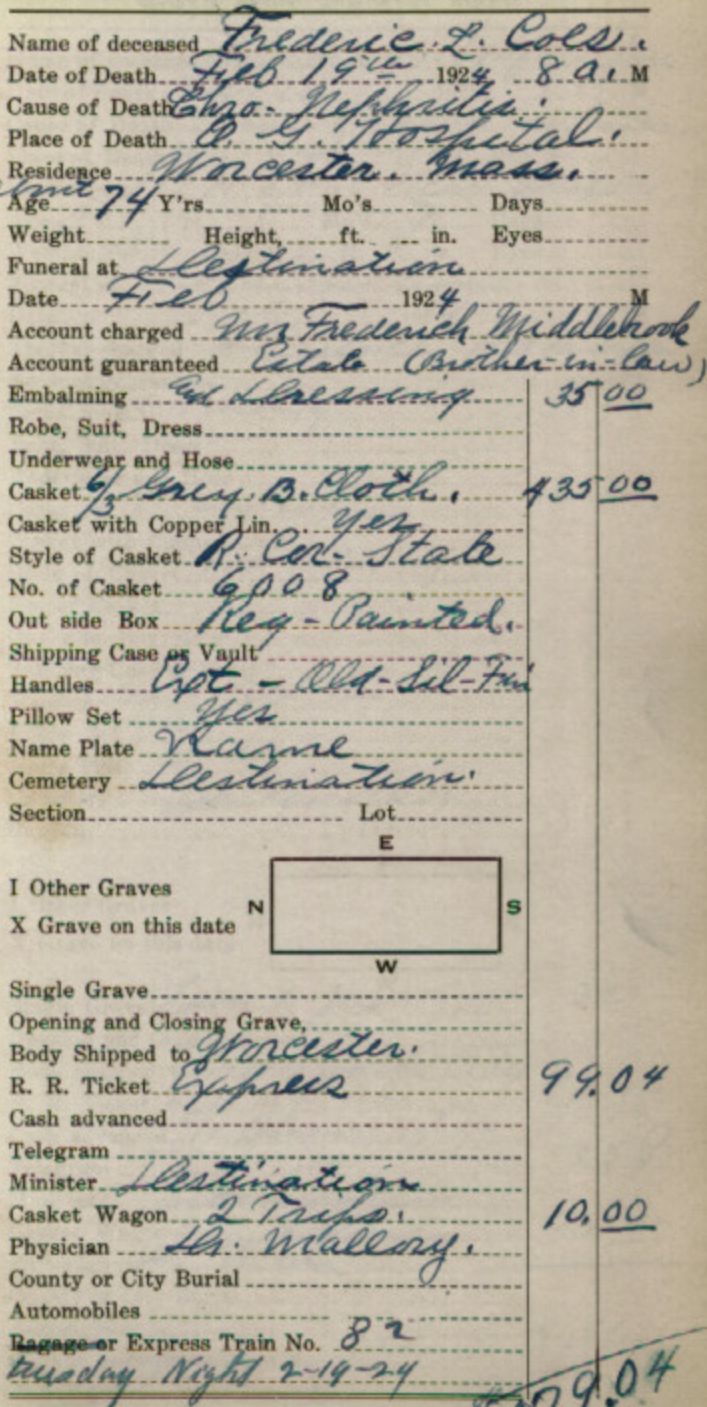 Name of deceased Frederic L. Coes.
Date of Death Feb 19th 1924 8 a. M
Cause of Death Chro- Nephritis.
Place of Death Hospital.
Residence Worcester. Mass.
about
Age 74 Y'rs Mo's Days
Weight Height, ft. in. Eyes
Funeral at Destination
Date Feb 1924 M
Account charged Mr Frederick Middlebrook
Account guaranteed Estate (Brother-in-law)
Embalming and Dressing 35 00
Robe, Suit, Dress
Underwear and Hose
Casket 6/3 Grey B. Cloth. 435 00
Casket with Copper Lin. Yes
Style of Casket R. Cor- State
No. of Casket 6008
Out side Box Reg - Painted.
Shipping Case or Vault
Handles Ext - Old - Sil - Fin
Pillow Set Yes
Name Plate Name
Cemetery Destination.
Section Lot
E
I Other Graves
N S
X Grave on this date
W
Single Grave
Opening and Closing Grave,
Body Shipped to Worcester.
R. R. Ticket Express 99.04
Cash advanced
Telegram
Minister Destination
Casket Wagon 2 Trips. 10.00
Physician Dr. Mallory.
County or City Burial
Automobiles
Bagage or Express Train No. 82
Tuesday Night 2-19-24 79.04